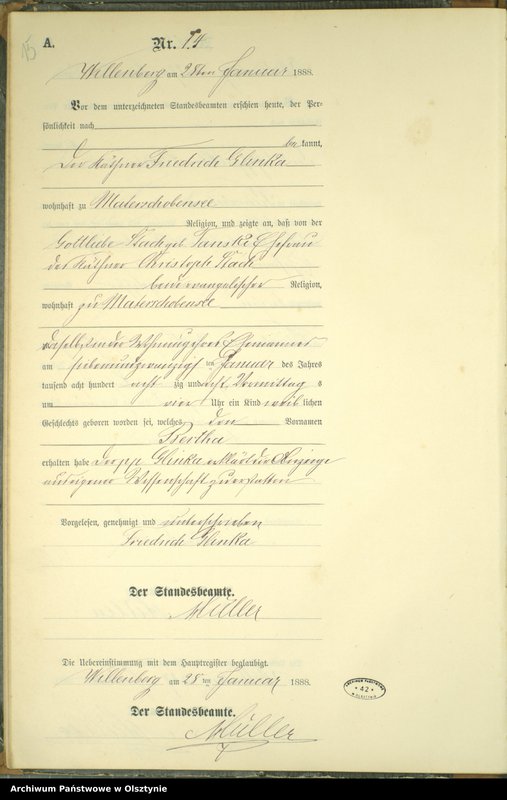 15
A.
Nr. 14
Willenberg am 28ten Januar 1888.
Vor dem unterzeichneten Standesbeamten erschien heute, der Per-
sönlichkeit nach
be kannt,
Der Käthner Friedrich Glinka
wohnhaft zu Materschobensee
Religion, und zeigte an, daß von der
Gottliebe Stach geb. Ehefrau
des Käthner Christoph Stach
beide evangelischer Religion,
wohnhaft zu Materschobensee
daselbst in der Wohnung ihres Ehemannes
am siebenundzwanzigsten Januar des Jahres
tausend acht hundert acht zig und acht Vormittag s
um vier Uhr ein Kind weib lichen
Geschlechts geboren worden sei, welches den Vornamen
Bertha
erhalten habe Der pp Glinka erklärt die Anzeige
aus eigener Wissenschaft zu erstatten
Vorgelesen, genehmigt und unterschrieben
Friedrich Glinka
Der Standesbeamte.
Müller
Die Uebereinstimmung mit dem Hauptregister beglaubigt.
Willenberg am 28 ten Januar 1888.
Der Standesbeamte.
Müller
42
Archiwum Państwowe w Olsztynie